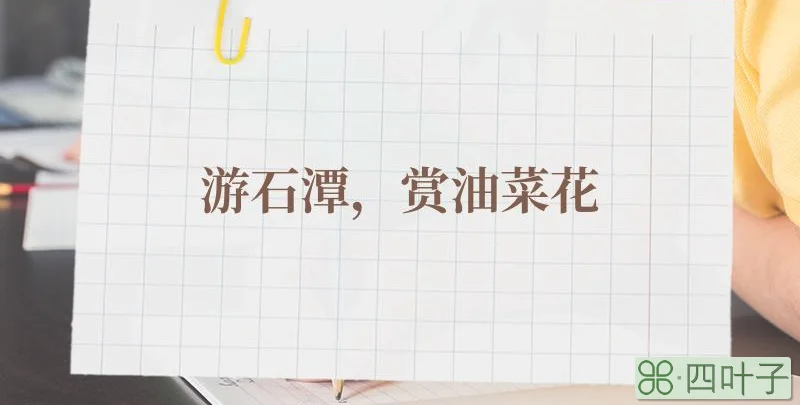 游石潭，赏油菜花
四叶子